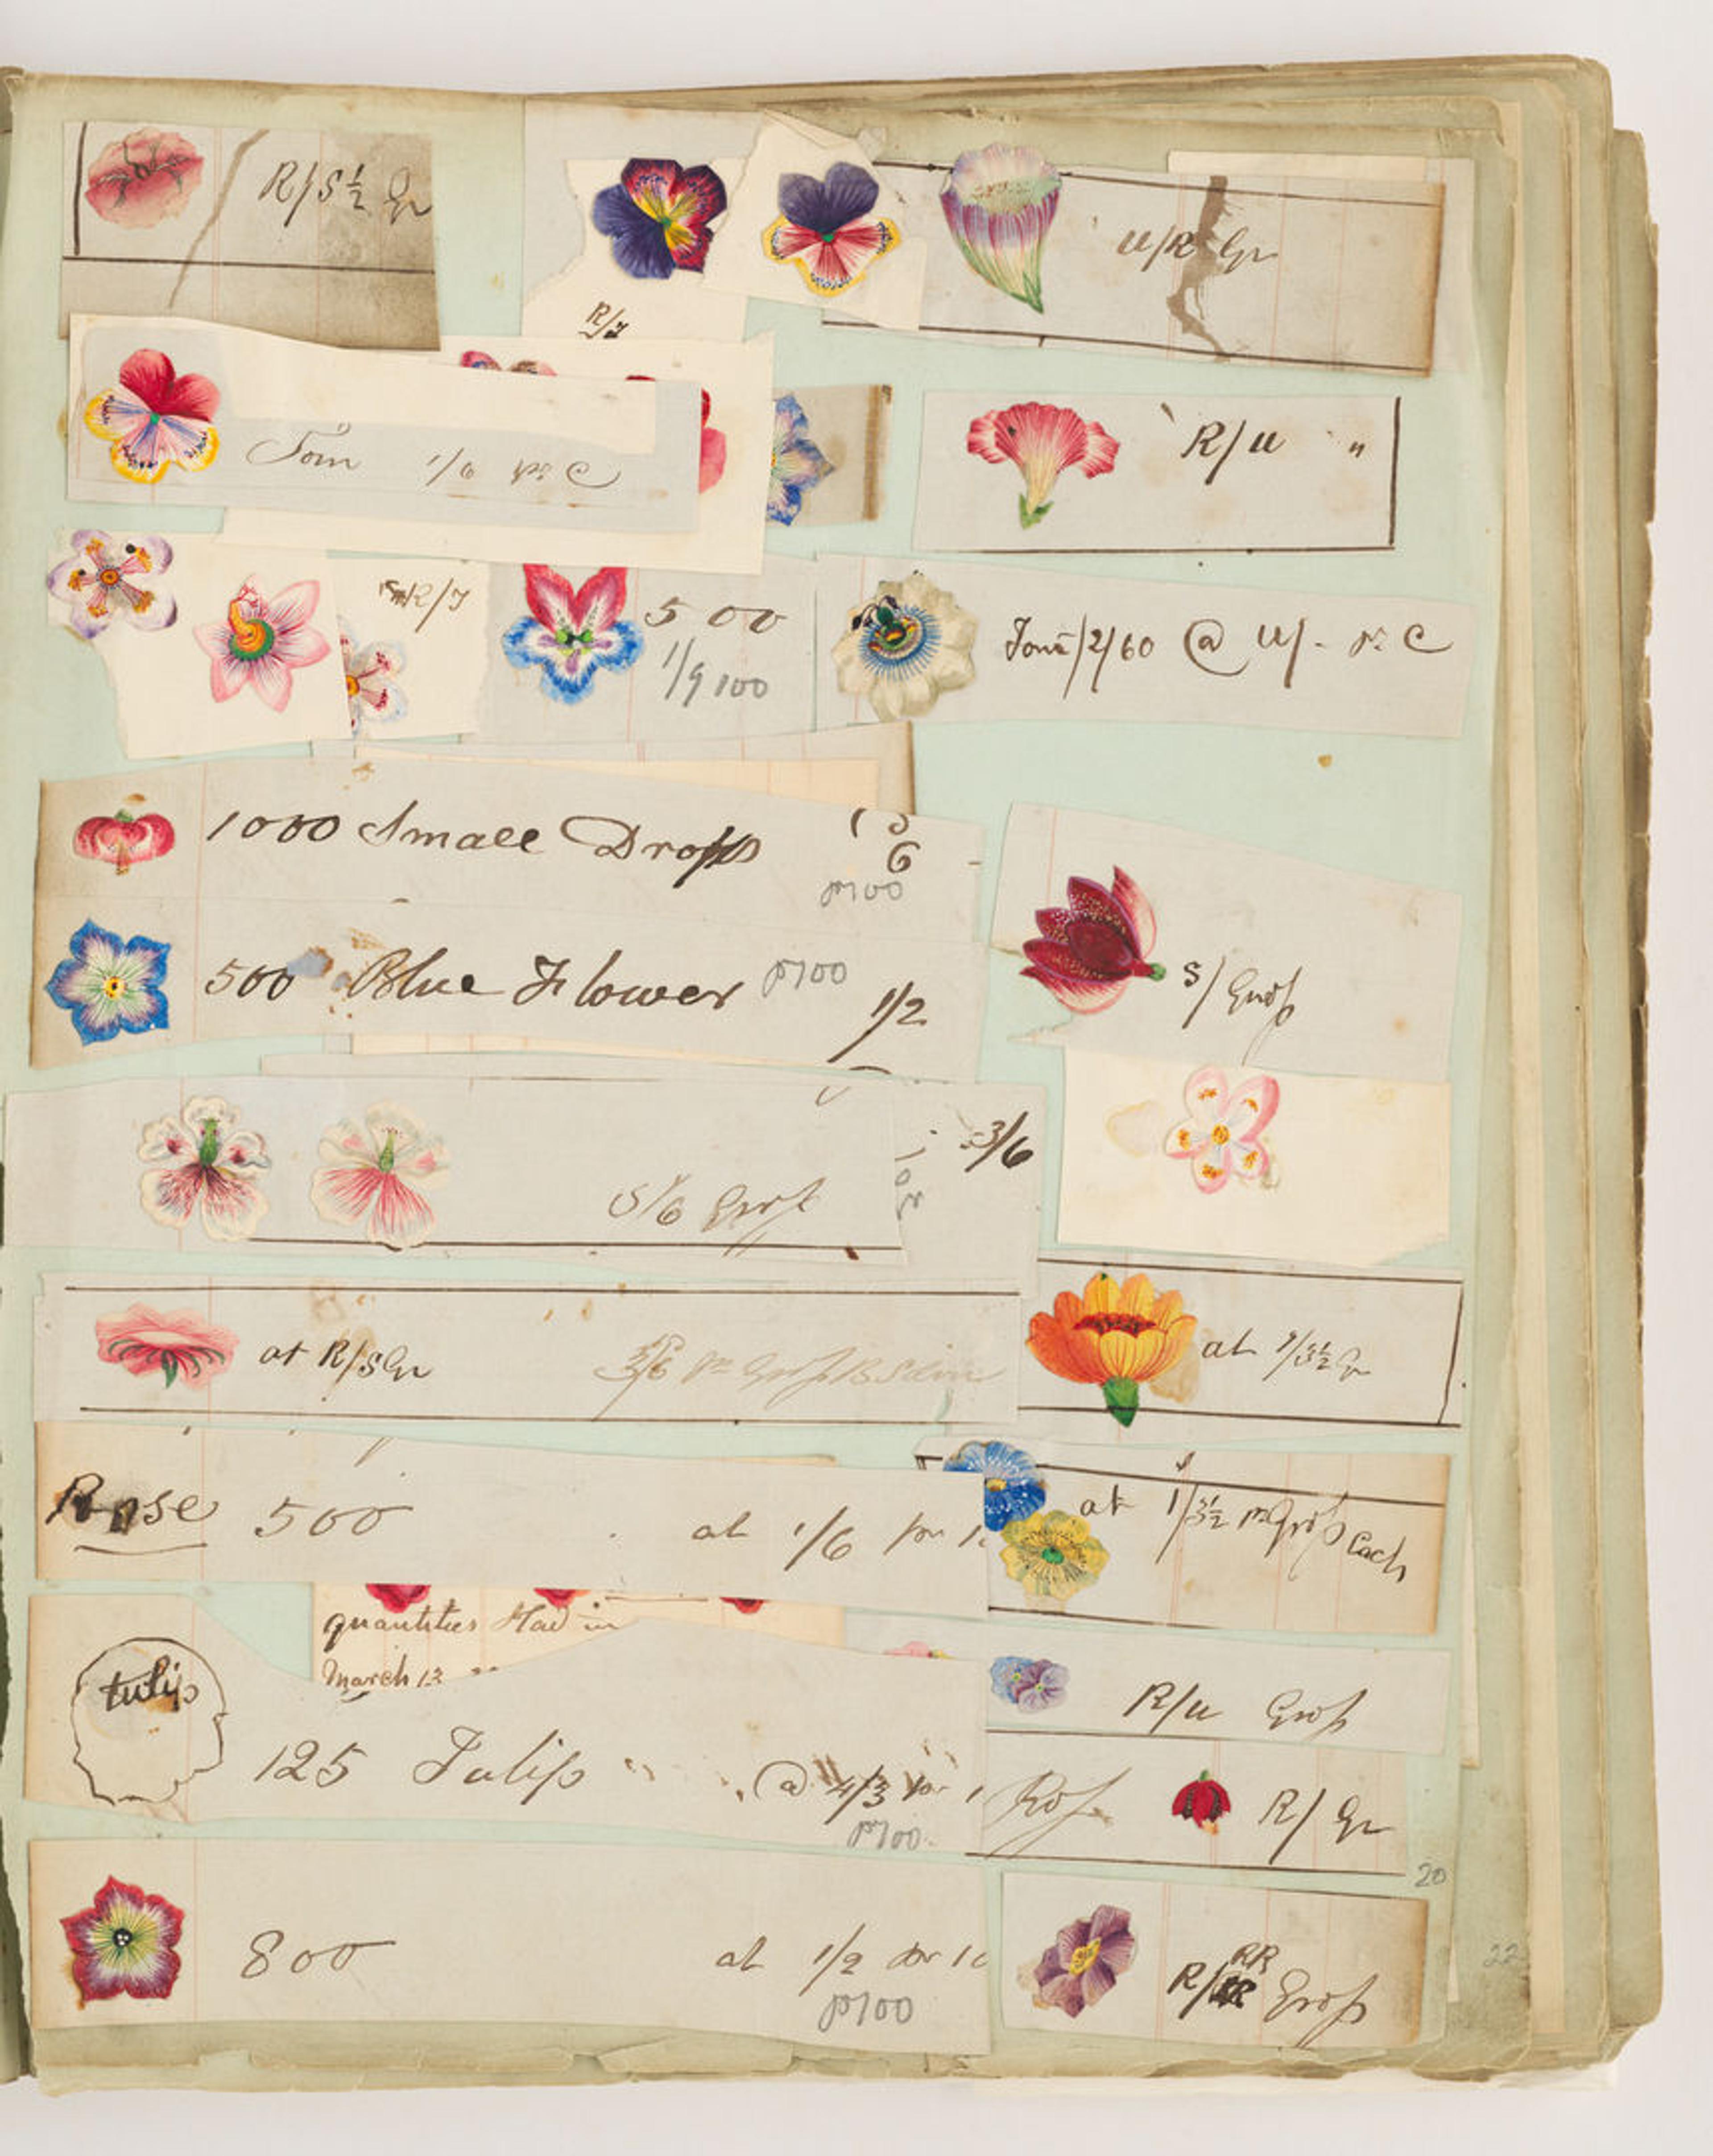 R/S½ Gr
R/
u/R Gr
1/6 pr C
R/u "
R/
500
1/9 100
/2/60 @ u/- pr C
1000 Small Drops
6
pr 100
500 Blue Flower pr 100
1/2
S/ Groſs
3/6
S/6 Groſs
at R/S Gr
at 1/3½ Gr
Rose 500 at 1/6 pr
at 1/3½ pr Groſs Each
quantities Had in
March 13
tulip
125 Tulip @ 4/3 for
pr 100
R/u Groſs
R/ Gr
20
800 at 1/2 for 10
pr 100
RR
R/ Groſs
22